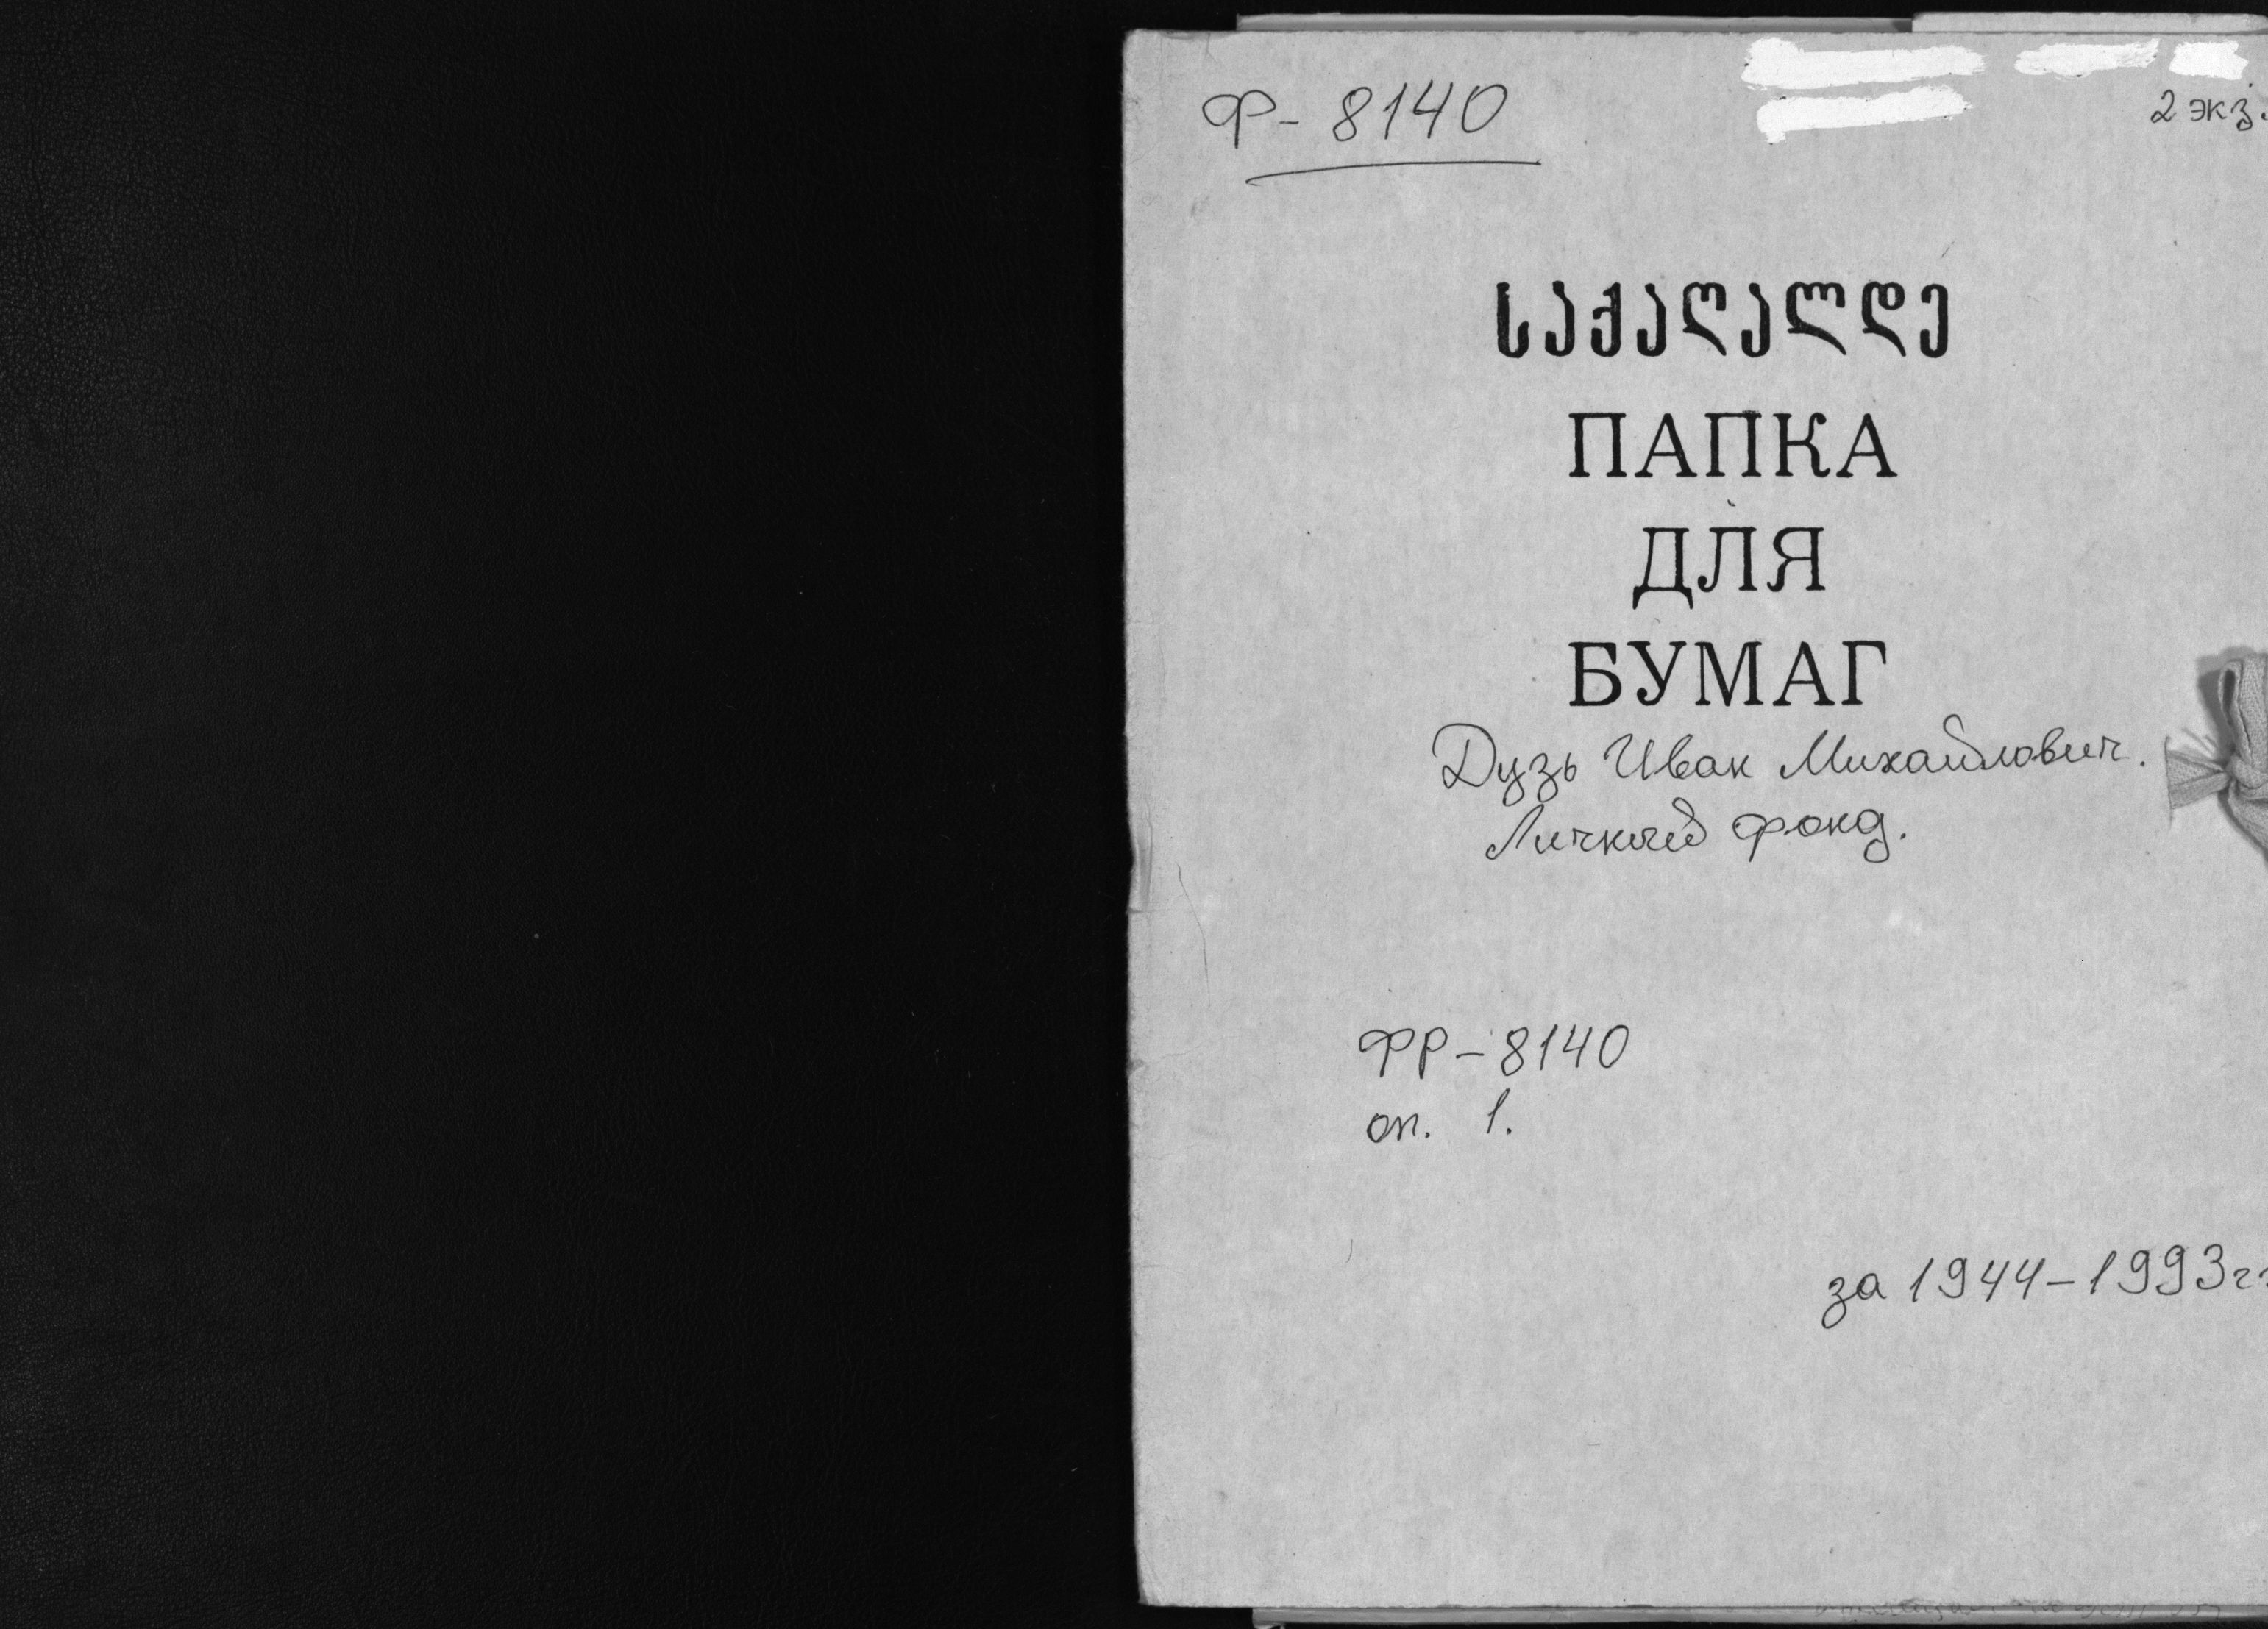 Ф- 8140
2 экз.
საქაღალდე
ПАПКА
ДЛЯ
БУМАГ
Дузь Иван Михайлович.
Личный фонд.
ФР-8140
оп. 1.
за 1944-1993гг